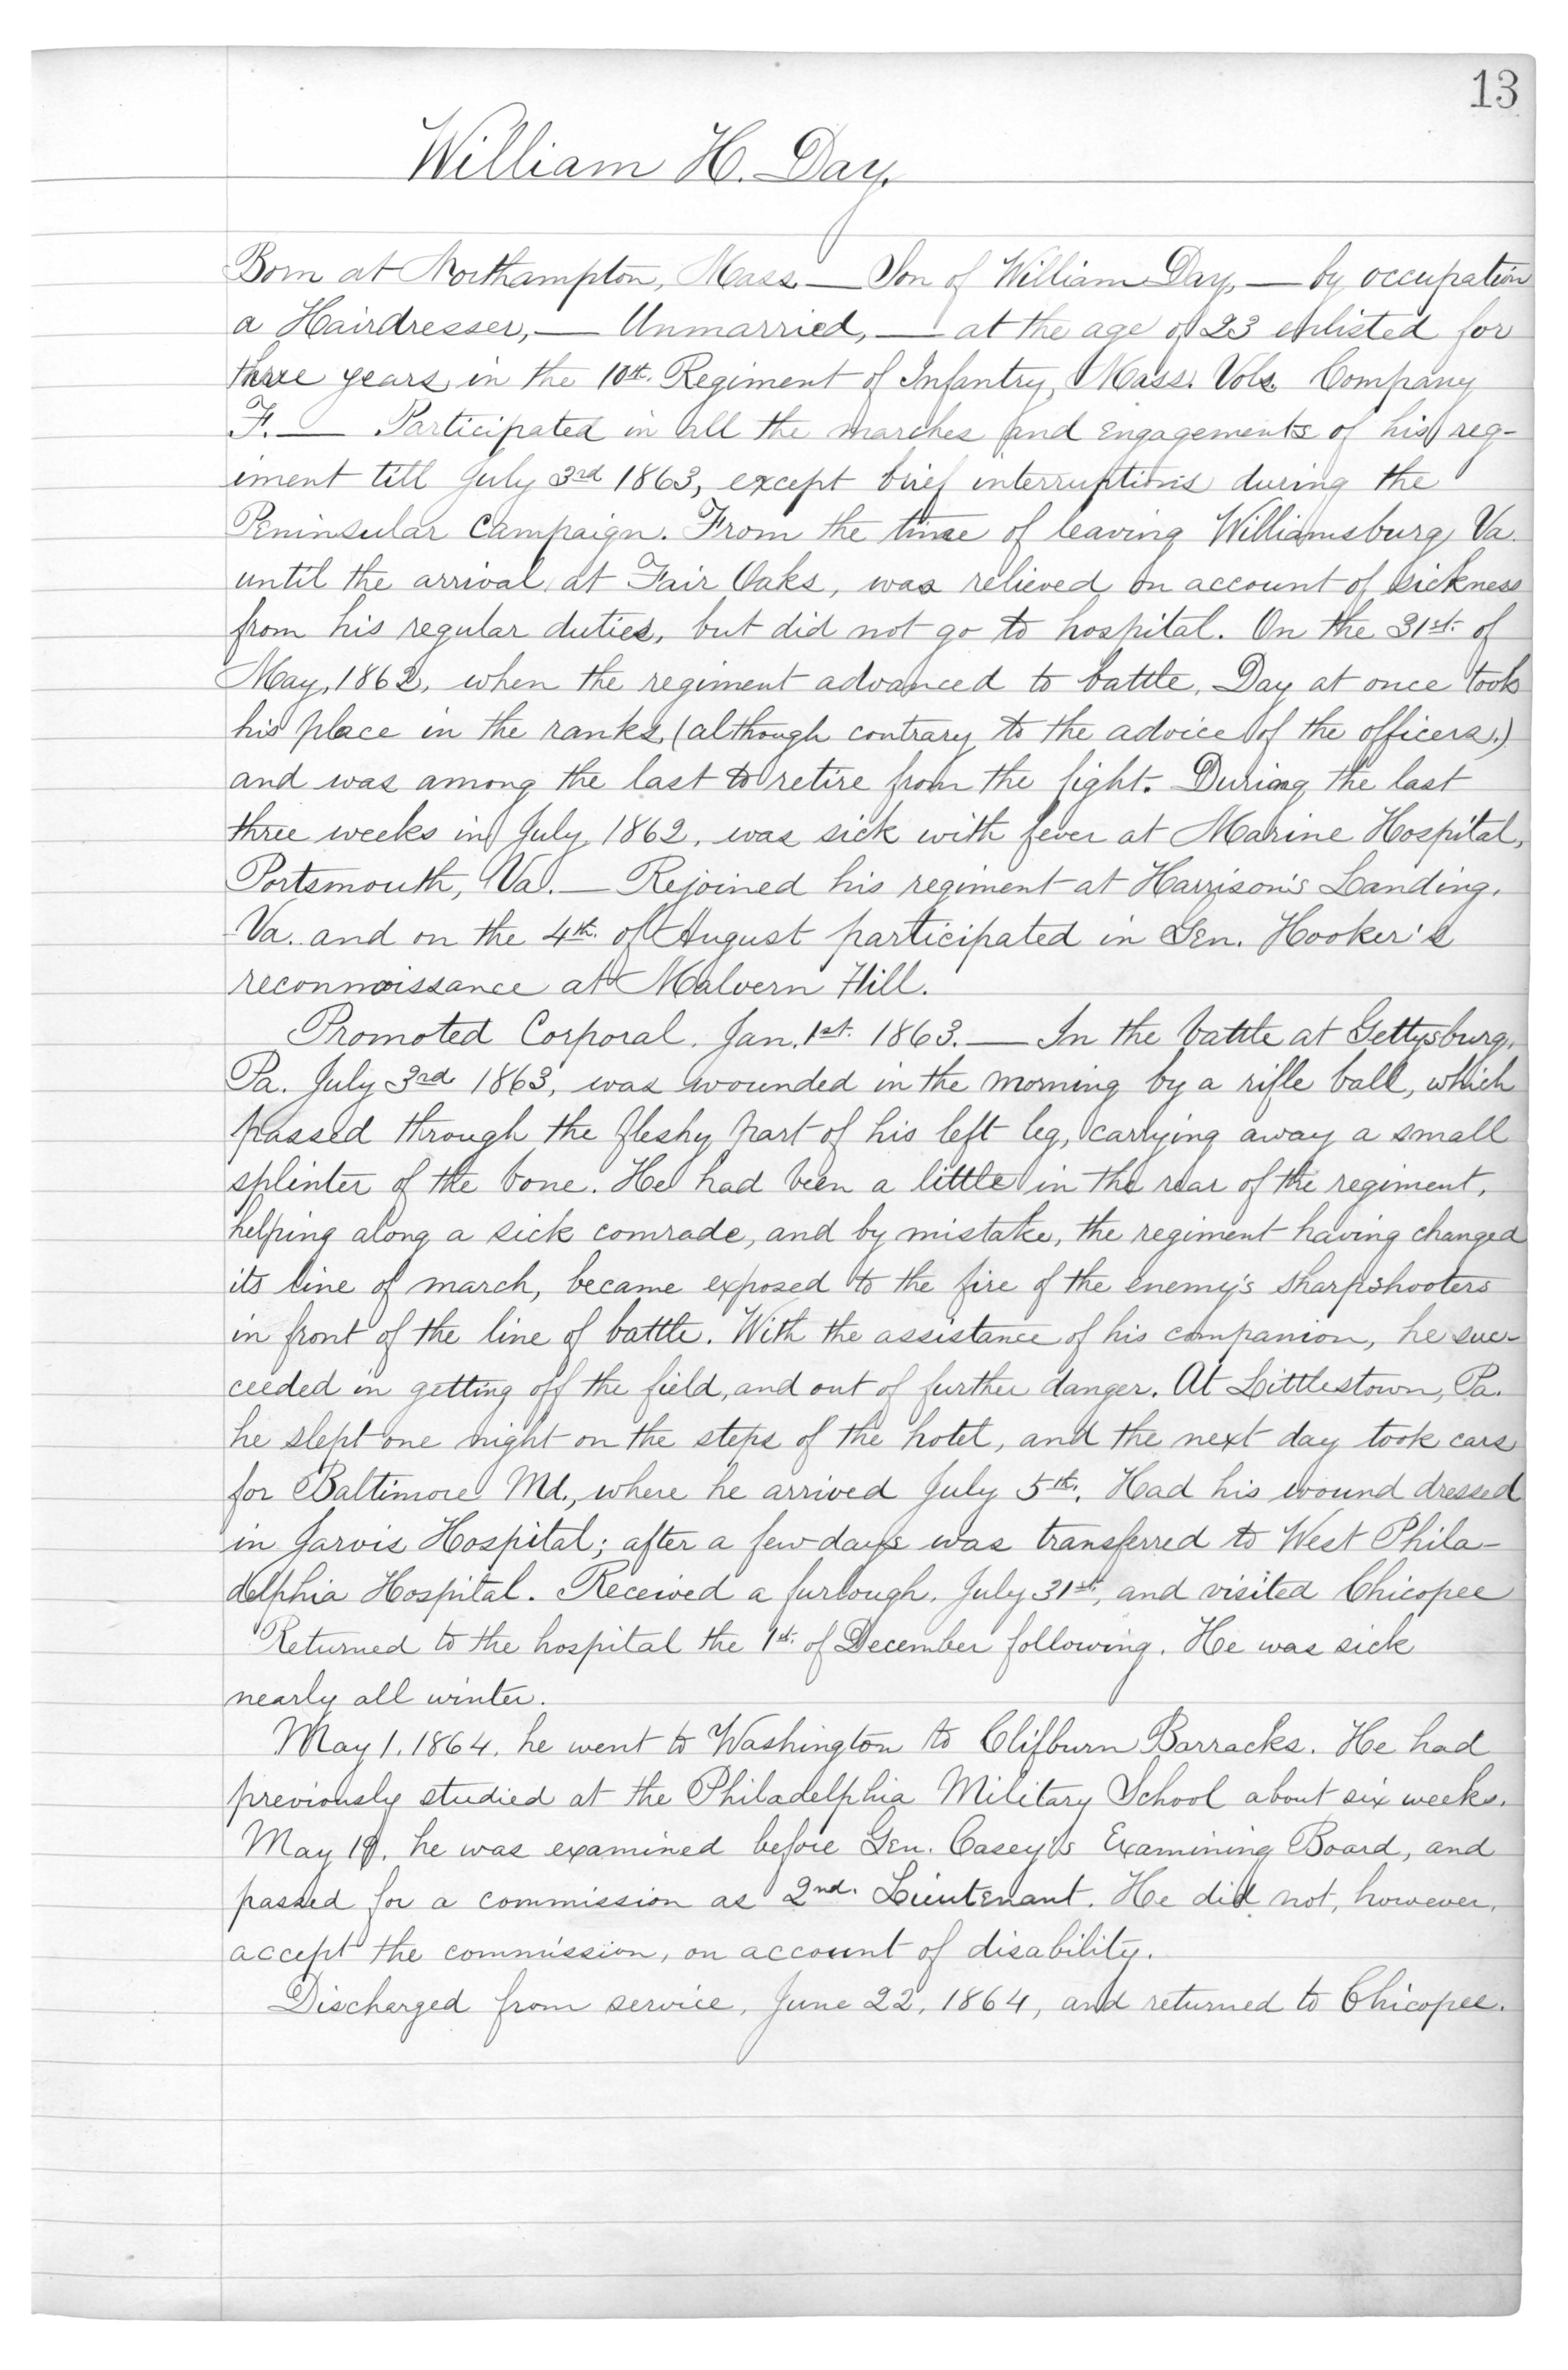 13
William H. Day.
Born at Northampton, Mass — Son of William Day, — by occupation
a Hairdresser, — Unmarried, — at the age of 23 enlisted for
three years in the 10th. Regiment of Infantry, Mass. Vols. Company
F. — Participated in all the marches and engagements of his reg-
iment till July 3rd 1863, except brief interruptions during the
Peninsular Campaign. From the time of leaving Williamsburg Va.
until the arrival at Fair Oaks, was relieved on account of sickness
from his regular duties, but did not go to hospital. On the 31st. of
May, 1862, when the regiment advanced to battle, Day at once took
his place in the ranks, (although contrary to the advice of the officers,)
and was among the last to retire from the fight. During the last
three weeks in July 1862, was sick with fever at Marine Hospital,
Portsmouth, Va. — Rejoined his regiment at Harrison's Landing,
Va. and on the 4th. of August participated in Gen. Hooker's
reconnoissance at Malvern Hill.
Promoted Corporal, Jan. 1st. 1863. — In the battle at Gettysburg,
Pa. July 3rd 1863, was wounded in the morning by a rifle ball, which
passed through the fleshy part of his left leg, carrying away a small
splinter of the bone. He had been a little in the rear of the regiment,
helping along a sick comrade, and by mistake, the regiment having changed
its line of march, became exposed to the fire of the enemy's sharpshooters
in front of the line of battle. With the assistance of his companion, he suc-
ceeded in getting off the field, and out of further danger. At Littlestown, Pa.
he slept one night on the steps of the hotel, and the next day took cars
for Baltimore Md., where he arrived July 5th. Had his wound dressed
in Jarvis Hospital; after a few days was transferred to West Phila-
delphia Hospital. Received a furlough, July 31st, and visited Chicopee
Returned to the hospital the 1st. of December following. He was sick
nearly all winter.
May 1. 1864, he went to Washington to Clifburn Barracks. He had
previously studied at the Philadelphia Military School about six weeks.
May he was examined before Gen. Casey's Examining Board, and
passed for a commission as 2nd. Lieutenant. He did not, however,
accept the commission, on account of disability.
Discharged from service, June 22, 1864, and returned to Chicopee.